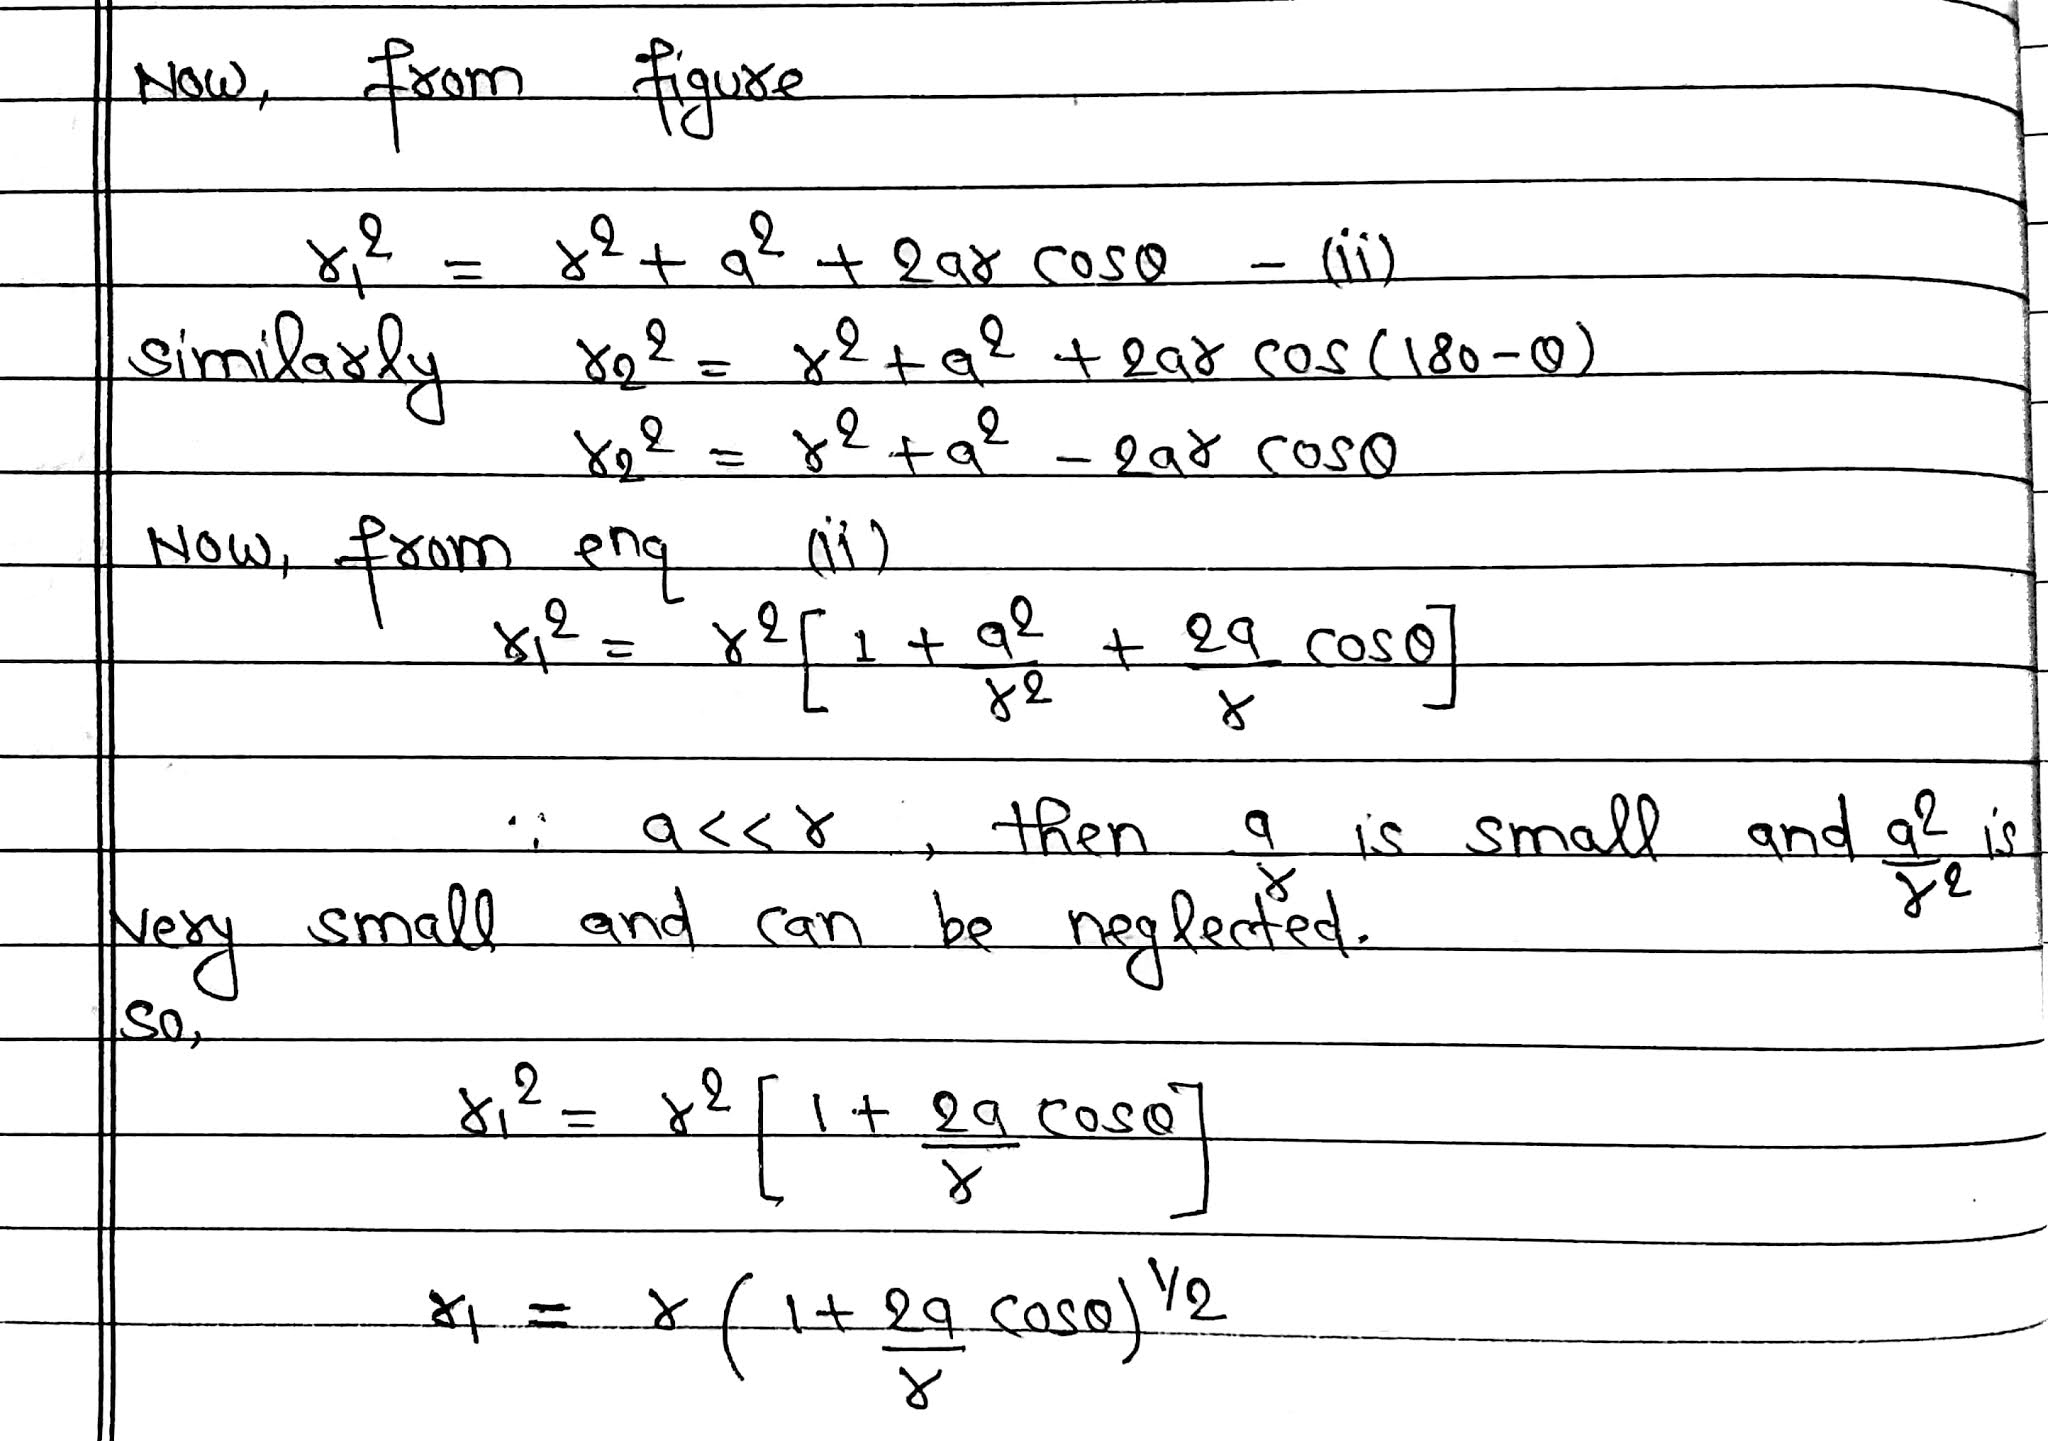 Now, from figure
r₁² = r² + a² + 2ar cosθ - (ii)
similarly r₂² = r² + a² + 2ar cos(180-θ)
r₂² = r² + a² - 2ar cosθ
Now, from enq (ii)
r₁² = r²[1 + a²/r² + 2a/r cosθ]
∵ a<<r, then a/r is small and a²/r² is
very small and can be neglected.
so,
r₁² = r²[1 + 2a/r cosθ]
r₁ = r(1 + 2a/r cosθ)^1/2